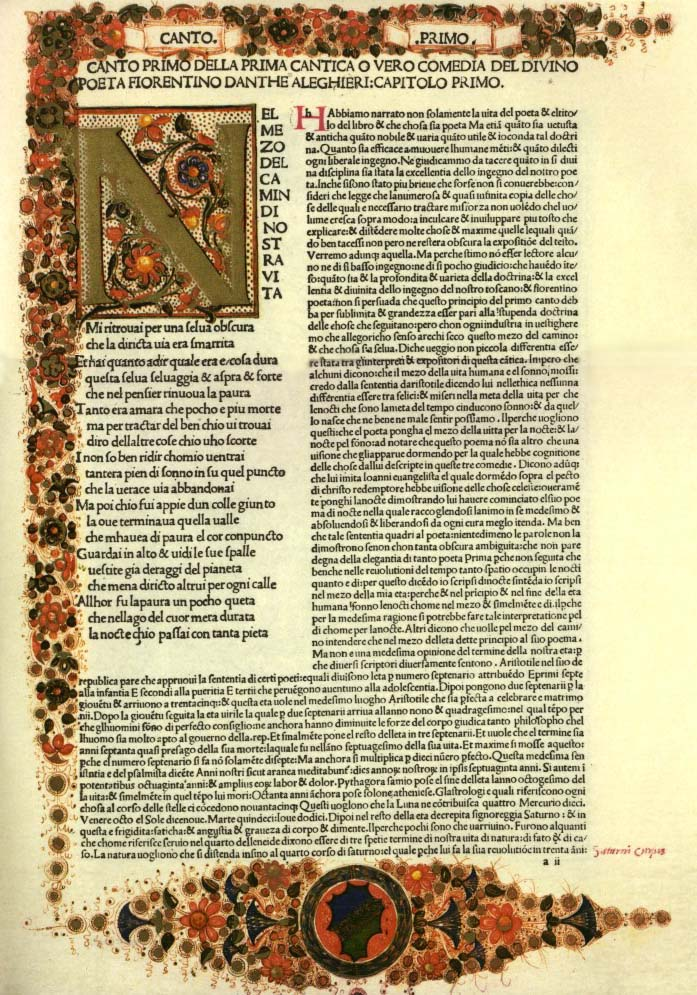 CANTO.
.PRIMO.
CANTO PRIMO DELLA PRIMA CANTICA O VERO COMEDIA DEL DIVINO
POETA FIORENTINO DANTHE ALEGHIERI: CAPITOLO PRIMO.
N
EL
MEZO
DEL
CA
MIN
DI
NO
ST
RA
VI
TA
Mi ritrouai per una selua obscura
che la diricta uia era smarrita
Et hai quanto adir quale era e cosa dura
questa selua seluaggia & aspra & forte
che nel pensier rinuoua la paura
Tanto era amara che pocho e piu morte
ma per tractar del ben chio ui trouai
diro dellaltre cose chio uho scorte
I non so ben ridir chomio uentrai
tantera pien di sonno in su quel puncto
che la uerace uia abbandonai
Ma poi chio fui appie dun colle giunto
la oue terminaua quella ualle
che mhauea di paura el cor conpuncto
Guardai in alto & uidi le sue spalle
uestite gia deraggi del pianeta
che mena diricto altrui per ogni calle
Allhor fu lapaura un pocho queta
che nellago del cuor mera durata
la nocte chio passai con tanta pieta
H
hAbbiamo narrato non solamente la uita del poeta & eltito/
lo del libro & che chosa sia poeta Ma etiã quãto sia uetusta
& anticha quãto nobile & uaria quãto utile & ioconda tal doctri
na. Quanto sia efficace a muouere lhumane mẽti: & quãto dilecti
ogni liberale ingegno. Ne giudicammo da tacere quãto in si diui
na disciplina sia stata la excellentia dello ingegno del nostro poe
ta. Inche sisono stato piu brieue che forse non si conuerebbe: con/
sideri che legge che lanumerosa & quasi infinita copia delle cho/
se delle quali e necessario tractare misforza non uolẽdo chel uo/
lume cresca sopra modo: a inculcare & inuiluppare piu tosto che
explicare: & distẽdere molte chose & maxime quelle lequali quã/
do ben tacessi non pero ne restera obscura la expositiõe del testo.
Verremo adunq; aquella. Ma perche stimo nõ esser lectore alcu/
no ne di si basso ingegno: ne di si pocho giudicio: che hauẽdo ite/
so: quãto sia & la profondita & uarieta della doctrina: & la excel
lentia & diuinita dello ingegno del nostro toscano: & fiorentino
poeta: non si persuada che questo principio del primo canto deb/
ba per sublimita & grandezza esser pari alla stupenda doctrina
delle chose che seguitano: pero chon ogni industria in uestighere
mo che allegoricho senso arechi seco questo mezo del camino:
& che chosa sia selua. Diche ueggio non piccola differentia esse/
re stata tra glinterpreti & expositori di questa cãtica. Impero che
alchuni dicono: che il mezo della uita humana e el sonno, mossi:
credo dalla sententia daristotile dicendo lui nellethica nessunna
differentia essere tra felici: & miseri nella meta della uita per che
lenocti che sono lameta del tempo cinducono sonno: & da quel/
lo nasce che ne bene ne male sentir possiamo. Ilperche uogliono
questi: che el poeta pongha el mezo della uitta per la nocte: & la/
nocte pel sõno: ad notare che questo poema nõ sia altro che una
uisione che gliapparue dormendo per la quale hebbe cognitione
delle chose dallui descripte in queste tre comedie. Dicono adũq;
che lui imita Ioanni euangelista el quale dormẽdo sopra el pecto
di christo redemptore hebbe uisione delle chose celesti: oueramẽ
te ponghi lanocte dimostrando lui hauere cominciato elsuo poe
ma di nocte nella quale raccogliendosi lanimo in se medesimo &
absoluendosi & liberando si da ogni cura meglo itenda. Ma ben
che tale sententia quadri al poeta: nientedimeno le parole non la
dimostrono senon chon tanta obscura ambiguita: che non pare
degna della elegantia di tanto poeta Prima pche non seguita che
benche nelle reuolutioni del tempo tanto spatio occupin le nocti
quanto e di: per questo dicẽdo io scripsi dinocte sintẽda io scripsi
nel mezo della mia eta: perche & nel pricipio & nel fine della eta
humana sonno lenocti chome nel mezo & similmẽte e di. ilpche
per la medesima ragione si potrebbe fare tale interpretatione pel
di chome per lanocte. Altri dicono che uolle pel mezo del cami/
no intendere che nel mezo delleta dette principio al suo poema.
Ma non e una medesima opinione del termine della nostra eta: p
che diuersi scriptori diuersamente sentono. Aristotile nel suo de
republica pare che appruoui la sententia di certi poeti: equali diuisono leta p numero septenario attribuẽdo E primi septe
alla infantia E secondi alla pueritia E tertii che peruẽgono auentuno alla adolescentia. Dipoi pongono due septenarii p la
giouẽtu & arriuono a trentacinq: & questa eta uole nel medesimo luogho Aristotile che sia pfecta a celebrare e matrimo
nii. Dopo la giouẽtu seguita la eta uirile la quale p due septenarii arriua allanno nono & quadragesimo: nel qual tẽpo per
che glhuomini sono di perfecto consiglio: ne anchora hanno diminuite le forze del corpo giudica tanto philosopho chel
lhuomo sia molto apto al gouerno della.rep. Et finalmẽte pone el resto delleta in tre septenarii. Et uuole che el termine sia
anni septanta quasi presago della sua morte: laquale fu nellãno septuagesimo della sua uita. Et maxime si mosse aquesto:
pche el numero septenario si fa nõ solamẽte disepte: Ma anchora si multiplica p dieci nũero pfecto. Questa medesima sen
tentia e del psalmista dicẽte Anni nostri sicut aranea meditabunt: dies annoȝ nostroȝ in ipsis septuaginta anni. Si autem i
potentatibus octuaginta anni: & amplius eoȝ labor & dolor. Pythagora samio pose el fine delleta lanno octogesimo del
la uita: & similmẽte in quel tẽpo lui mori: Octanta anni ãchora pose solone atheniese. Glastrologi e quali riferiscono ogni
chosa al corso delle stelle ci cõcedono nouantacinq; Questi uoglono che la Luna ne cõtribuisca quattro Mercurio dieci.
Venere octo el Sole dicenoue. Marte quindeci: Ioue dodici. Dipoi nel resto della eta decrepita signoreggia Saturno: & in
questa e frigidita: saticha: & angustia & graueza di corpo & dimente. Ilperche pochi sono che uarriuino. Furono alquanti
che chome riferisce seruio nel quarto delleneide dixono essere di tre spetie termine di nostra uita di natura: di fato & di ca/
so. La natura uogliono che si distenda insino al quarto corso di saturno: el quale pche lui fa la sua reuolutiõe in trenta ãni:
Saturni Corpus
a ii